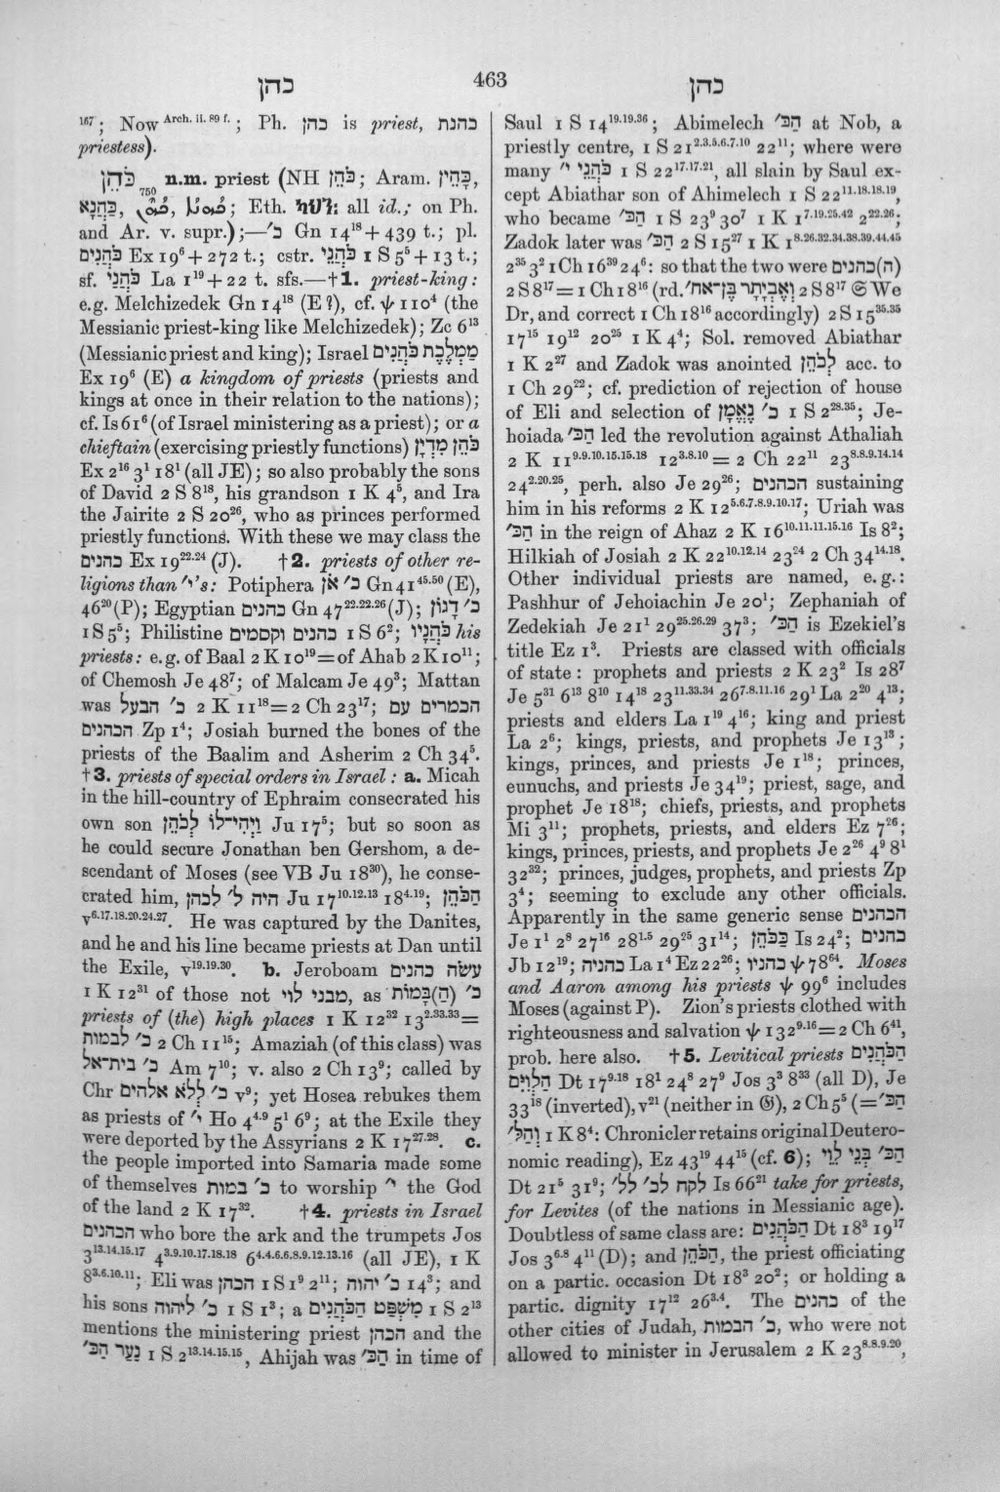 כהן 463 כהן
¹⁶⁷; Now ᴬʳᶜʰ· ⁱⁱ· ⁸⁹ ᶠ·; Ph. כהן is priest, כהנת
priestess).
כֹּהֵן ₇₅₀ n.m. priest (NH כֹּהֵן; Aram. כָּהֵין,
כַּהֲנָא, all id.; on Ph.
and Ar. v. supr.);—כ׳ Gn 14¹⁸ + 439 t.; pl.
כֹּהֲנִים Ex 19⁶ + 272 t.; cstr. כֹּהֲנֵי 1 S 5⁵ + 13 t.;
sf. כֹּהֲנַי La 1¹⁹ + 22 t. sfs.—†1. priest-king:
e.g. Melchizedek Gn 14¹⁸ (E?), cf. ψ 110⁴ (the
Messianic priest-king like Melchizedek); Zc 6¹³
(Messianic priest and king); Israel מַמְלֶכֶת כֹּהֲנִים
Ex 19⁶ (E) a kingdom of priests (priests and
kings at once in their relation to the nations);
cf. Is 61⁶ (of Israel ministering as a priest); or a
chieftain (exercising priestly functions) כֹּהֵן מִדְיָן
Ex 2¹⁶ 3¹ 18¹ (all JE); so also probably the sons
of David 2 S 8¹⁸, his grandson 1 K 4⁵, and Ira
the Jairite 2 S 20²⁶, who as princes performed
priestly functions. With these we may class the
כהנים Ex 19²²·²⁴ (J). †2. priests of other re-
ligions than י׳'s: Potiphera כ׳ אֹן Gn 41⁴⁵·⁵⁰ (E),
46²⁰ (P); Egyptian כהנים Gn 47²²·²²·²⁶ (J); כ׳ דָגוֹן
1 S 5⁵; Philistine כהנים וקסמים 1 S 6²; כֹּהֲנָיו his
priests: e.g. of Baal 2 K 10¹⁹ = of Ahab 2 K 10¹¹;
of Chemosh Je 48⁷; of Malcam Je 49³; Mattan
was כ׳ הבעל 2 K 11¹⁸ = 2 Ch 23¹⁷; הכמרים עם
הכהנים Zp 1⁴; Josiah burned the bones of the
priests of the Baalim and Asherim 2 Ch 34⁵.
†3. priests of special orders in Israel: a. Micah
in the hill-country of Ephraim consecrated his
own son וַיְהִי־לוֹ לְכֹהֵן Ju 17⁵; but so soon as
he could secure Jonathan ben Gershom, a de-
scendant of Moses (see VB Ju 18³⁰), he conse-
crated him, היה ל׳ לכהן Ju 17¹⁰·¹²·¹³ 18⁴·¹⁹; הַכֹּהֵן
v⁶·¹⁷·¹⁸·²⁰·²⁴·²⁷. He was captured by the Danites,
and he and his line became priests at Dan until
the Exile, v¹⁹·¹⁹·³⁰. b. Jeroboam עשׂה כהנים
1 K 12³¹ of those not מבני לוי, as כ׳ (הַ)בָּמוֹת
priests of (the) high places 1 K 12³² 13²·³³·³³ =
כ׳ לבמות 2 Ch 11¹⁵; Amaziah (of this class) was
כ׳ בית־אל Am 7¹⁰; v. also 2 Ch 13⁹; called by
Chr כ׳ לְלֹא אלהים v⁹; yet Hosea rebukes them
as priests of י׳ Ho 4⁴·⁹ 5¹ 6⁹; at the Exile they
were deported by the Assyrians 2 K 17²⁷·²⁸. c.
the people imported into Samaria made some
of themselves כ׳ במות to worship י׳ the God
of the land 2 K 17³². †4. priests in Israel
הכהנים who bore the ark and the trumpets Jos
3¹³·¹⁴·¹⁵·¹⁷ 4³·⁹·¹⁰·¹⁷·¹⁸·¹⁸ 6⁴·⁴·⁶·⁶·⁸·⁹·¹²·¹³·¹⁶ (all JE), 1 K
8³·⁶·¹⁰·¹¹; Eli was הכהן 1 S 1⁹ 2¹¹; כ׳ יהוה 14³; and
his sons כ׳ ליהוה 1 S 1³; a מִשְׁפַּט הַכֹּהֲנִים 1 S 2¹³
mentions the ministering priest הכהן and the
נַעַר הַכּ׳ 1 S 2¹³·¹⁴·¹⁵·¹⁵, Ahijah was הַכּ׳ in time of
Saul 1 S 14¹⁹·¹⁹·³⁶; Abimelech הַכּ׳ at Nob, a
priestly centre, 1 S 21²·³·⁵·⁶·⁷·¹⁰ 22¹¹; where were
many כֹּהֲנֵי י׳ 1 S 22¹⁷·¹⁷·²¹, all slain by Saul ex-
cept Abiathar son of Ahimelech 1 S 22¹¹·¹⁸·¹⁸·¹⁹,
who became הַכּ׳ 1 S 23⁹ 30⁷ 1 K 1⁷·¹⁹·²⁵·⁴² 2²²·²⁶;
Zadok later was הַכּ׳ 2 S 15²⁷ 1 K 1⁸·²⁶·³²·³⁴·³⁸·³⁹·⁴⁴·⁴⁵
2³⁵ 3² 1 Ch 16³⁹ 24⁶: so that the two were (ה)כהנים
2 S 8¹⁷ = 1 Ch 18¹⁶ (rd. וְאֶבְיָתָר בֶּן־אח׳ 2 S 8¹⁷ 𝔖 We
Dr, and correct 1 Ch 18¹⁶ accordingly) 2 S 15³⁵·³⁵
17¹⁵ 19¹² 20²⁵ 1 K 4⁴; Sol. removed Abiathar
1 K 2²⁷ and Zadok was anointed לְכֹהֵן acc. to
1 Ch 29²²; cf. prediction of rejection of house
of Eli and selection of כ׳ נֶאֱמָן 1 S 2²⁸·³⁵; Je-
hoiada הַכּ׳ led the revolution against Athaliah
2 K 11⁹·⁹·¹⁰·¹⁵·¹⁵·¹⁸ 12³·⁸·¹⁰ = 2 Ch 22¹¹ 23⁸·⁸·⁹·¹⁴·¹⁴
24²·²⁰·²⁵, perh. also Je 29²⁶; הכהנים sustaining
him in his reforms 2 K 12⁵·⁶·⁷·⁸·⁹·¹⁰·¹⁷; Uriah was
הַכּ׳ in the reign of Ahaz 2 K 16¹⁰·¹¹·¹¹·¹⁵·¹⁶ Is 8²;
Hilkiah of Josiah 2 K 22¹⁰·¹²·¹⁴ 23²⁴ 2 Ch 34¹⁴·¹⁸.
Other individual priests are named, e.g.:
Pashhur of Jehoiachin Je 20¹; Zephaniah of
Zedekiah Je 21¹ 29²⁵·²⁶·²⁹ 37³; הַכּ׳ is Ezekiel's
title Ez 1³. Priests are classed with officials
of state: prophets and priests 2 K 23² Is 28⁷
Je 5³¹ 6¹³ 8¹⁰ 14¹⁸ 23¹¹·³³·³⁴ 26⁷·⁸·¹¹·¹⁶ 29¹ La 2²⁰ 4¹³;
priests and elders La 1¹⁹ 4¹⁶; king and priest
La 2⁶; kings, priests, and prophets Je 13¹³;
kings, princes, and priests Je 1¹⁸; princes,
eunuchs, and priests Je 34¹⁹; priest, sage, and
prophet Je 18¹⁸; chiefs, priests, and prophets
Mi 3¹¹; prophets, priests, and elders Ez 7²⁶;
kings, princes, priests, and prophets Je 2²⁶ 4⁹ 8¹
32³²; princes, judges, prophets, and priests Zp
3⁴; seeming to exclude any other officials.
Apparently in the same generic sense הכהנים
Je 1¹ 2⁸ 27¹⁶ 28¹·⁵ 29²⁵ 31¹⁴; כַּכֹּהֵן Is 24²; כהנים
Jb 12¹⁹; כהניה La 1⁴ Ez 22²⁶; כהניו ψ 78⁶⁴. Moses
and Aaron among his priests ψ 99⁶ includes
Moses (against P). Zion's priests clothed with
righteousness and salvation ψ 132⁹·¹⁶ = 2 Ch 6⁴¹,
prob. here also. †5. Levitical priests הַכֹּהֲנִים
הַלְוִיִּם Dt 17⁹·¹⁸ 18¹ 24⁸ 27⁹ Jos 3³ 8³³ (all D), Je
33¹⁸ (inverted), v²¹ (neither in 𝔊), 2 Ch 5⁵ (= הַכּ׳
וְהַל׳ 1 K 8⁴: Chronicler retains original Deutero-
nomic reading), Ez 43¹⁹ 44¹⁵ (cf. 6); הַכּ׳ בְּנֵי לֵוִי
Dt 21⁵ 31⁹; לקח לכ׳ לל׳ Is 66²¹ take for priests,
for Levites (of the nations in Messianic age).
Doubtless of same class are: הַכֹּהֲנִים Dt 18³ 19¹⁷
Jos 3⁶·⁸ 4¹¹ (D); and הַכֹּהֵן, the priest officiating
on a partic. occasion Dt 18³ 20²; or holding a
partic. dignity 17¹² 26³·⁴. The כהנים of the
other cities of Judah, כ׳ הבמות, who were not
allowed to minister in Jerusalem 2 K 23⁸·⁸·⁹·²⁰,